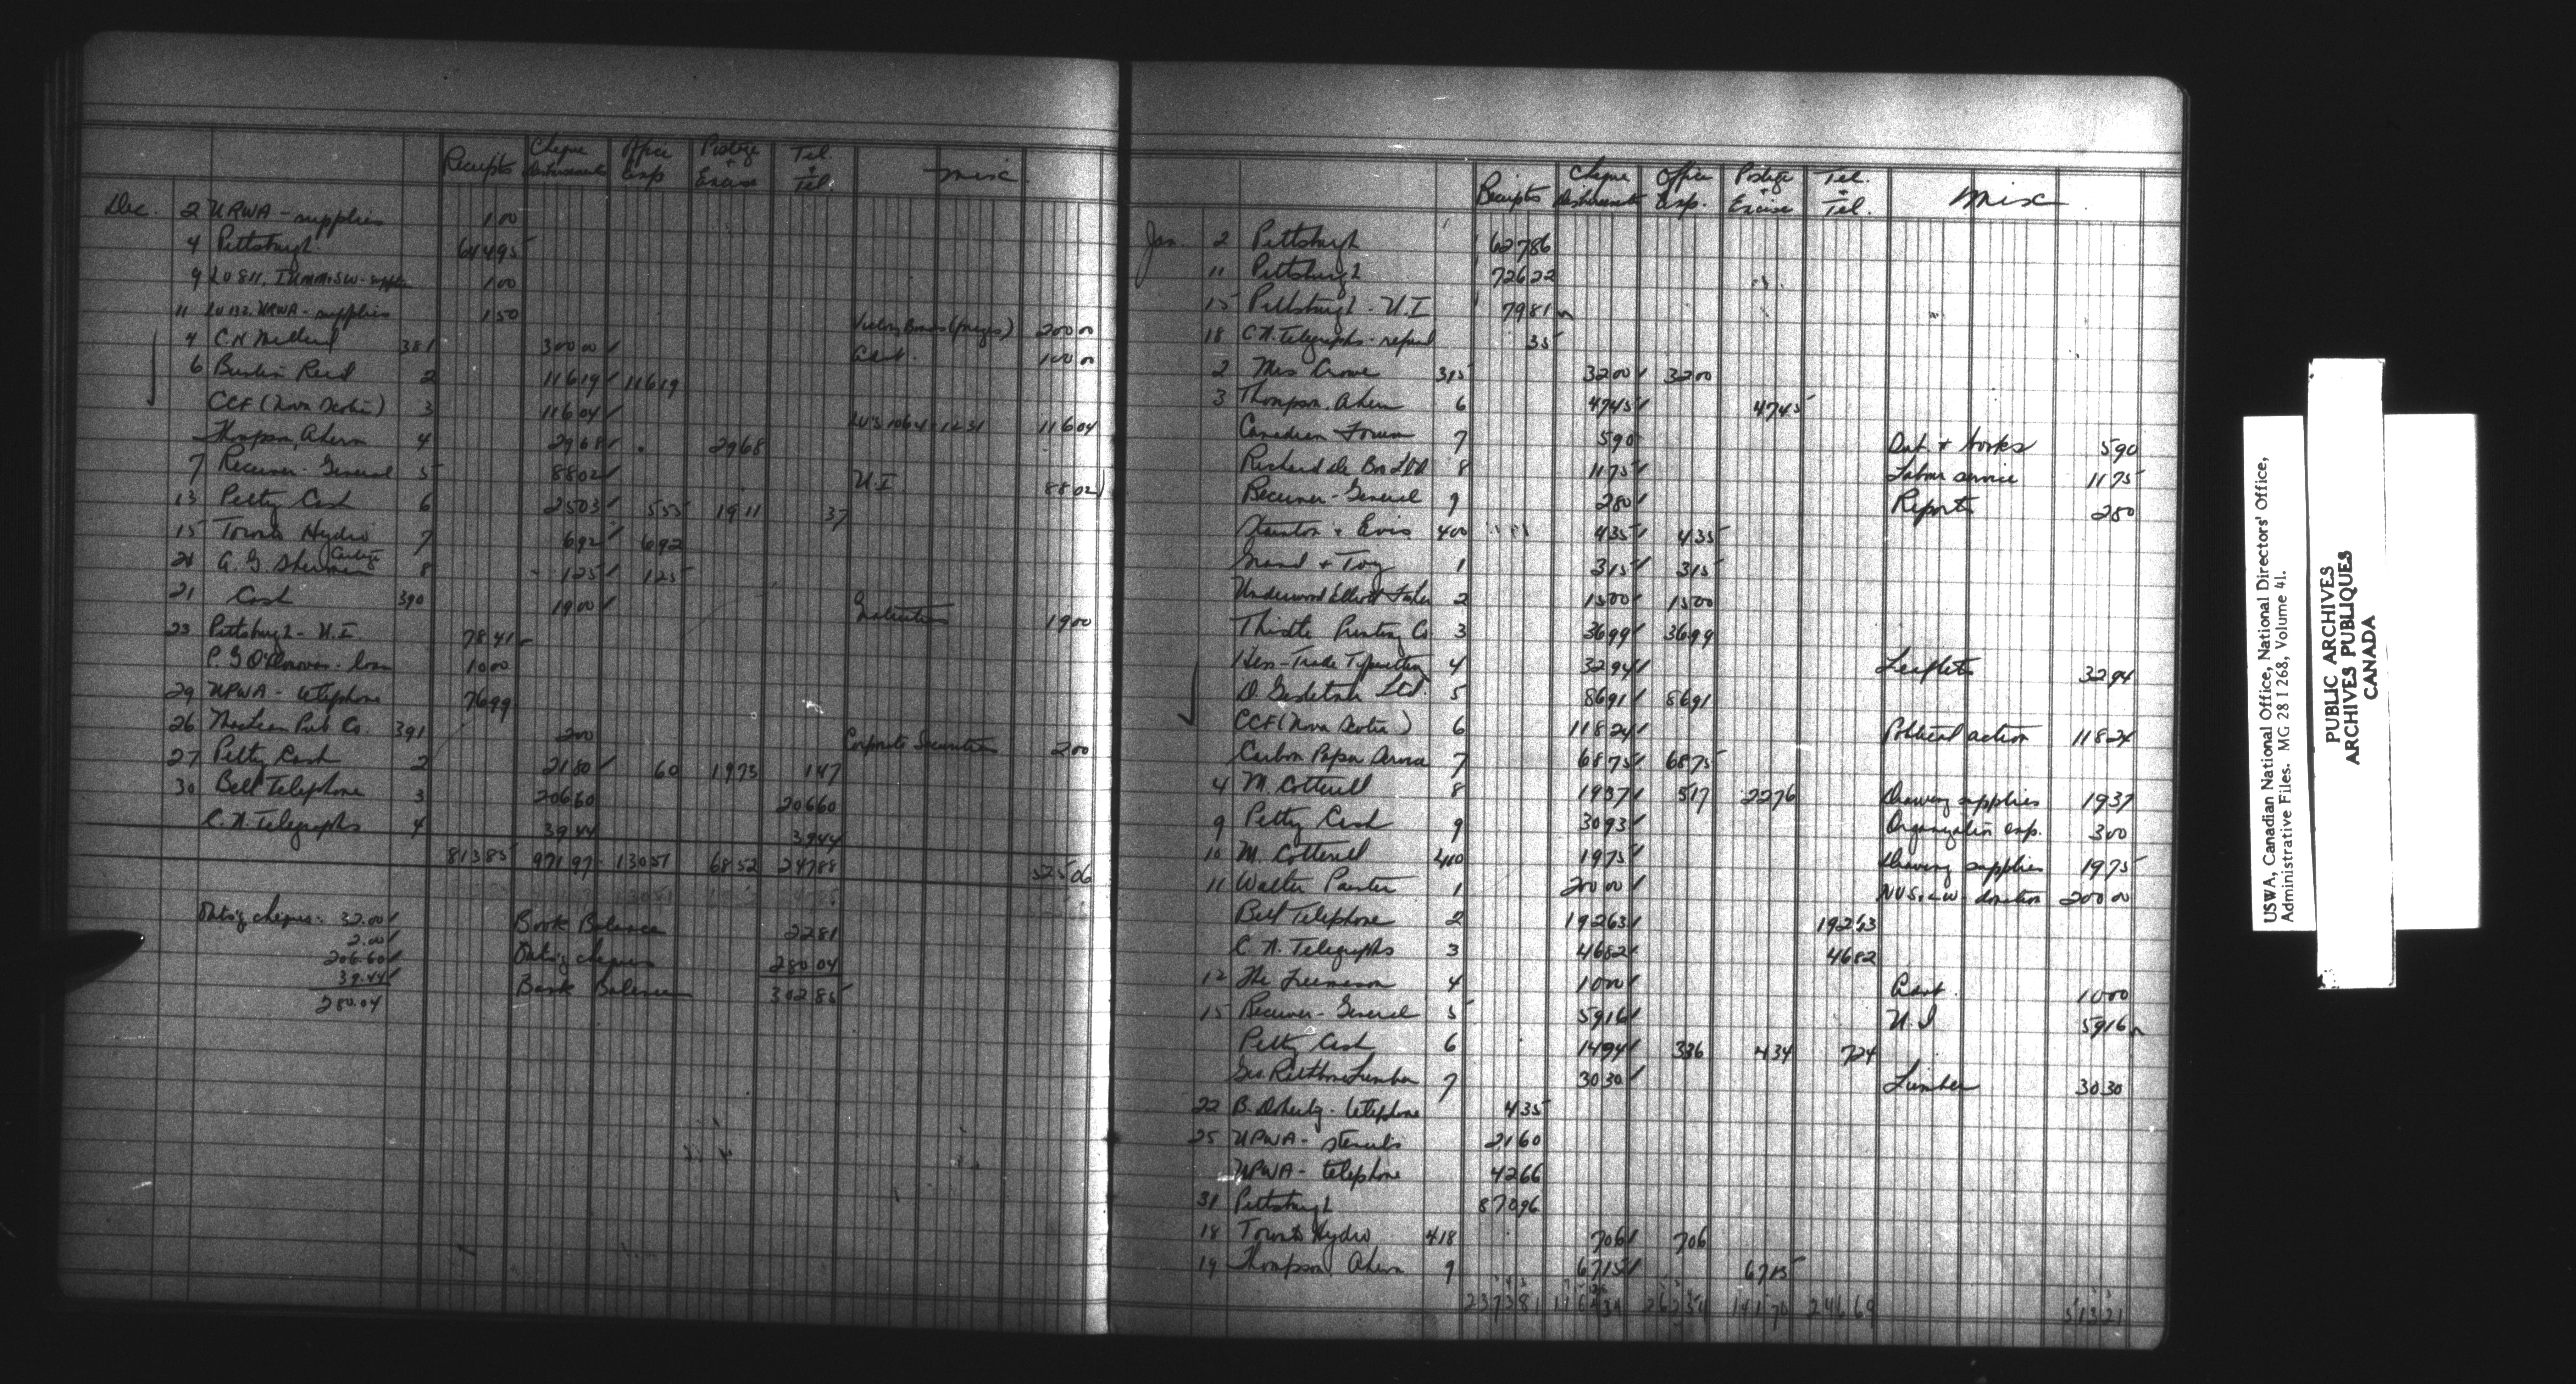 Receipts Cheque Disbursements Office Exp Postage + Excise Tel. + Tel. Misc.
Dec. 2 URWA - supplies 1 00
4 Pittsburgh 644 95
9 LU 811, IUMM&SW - supplies 1 00
11 LU 132, URWA - supplies 1 50
4 C.H. Millard 381 300 00 Victory Bonds 200 00
Advt. 100 00
6 Burlin Reid 2 116 19 116 19
CCF (Nova Scotia) 3 116 04 LU's 1064-1231 116 04
Thompson, Ahern 4 29 68 29 68
7 Receiver-General 5 88 02 U.I. 88 02
13 Petty Cash 6 25 03 5 55 19 11 37
15 Toronto Hydro 7 6 92 6 92
21 A.G. Sherman Cartage 8 1 25 1 25
21 Cash 390 19 00 Gratuities 19 00
23 Pittsburgh - U.I. 78 41
P.G. O'Donovan - loan 10 00
29 UPWA - telephone 76 99
26 MacLean Pub Co. 391 2 00 Corporate Securities 2 00
27 Petty Cash 2 21 80 60 19 73 1 47
30 Bell Telephone 3 206 60 206 60
C.N. Telegraphs 4 39 44 39 44
813 85 971 97 130 51 68 52 247 88 525 06
Outs'g cheques - 32.00 Book Balance 22 81
2.00 Outs'g cheques 280 04
206.60 Bank Balance 302 85
39.44
280.04
Receipts Cheque Disbursements Office Exp. Postage + Excise Tel. + Tel. Misc
Jan. 2 Pittsburgh 627 86
11 Pittsburgh 726 22
15 Pittsburgh - U.I 79 81
18 C.N. Telegraphs - refund 35
2 Mrs Crowe 395 32 00 32 00
3 Thompson, Ahern 6 47 45 47 45
Canadian Forum 7 5 90 Dat + books 5 90
Richard de Boo Ltd 8 11 75 Labour service 11 75
Receiver-General 9 2 80 Reports 2 80
Stainton + Evis 400 4 35 4 35
Grand + Toy 1 3 15 3 15
Underwood Elliott Fisher 2 15 00 15 00
Thistle Printing Co 3 36 99 36 99
Hess-Trade Typesetting 4 32 94 Leaflets 32 94
D. Gestetner Ltd. 5 86 91 86 91
CCF (Nova Scotia) 6 118 24 Political action 118 24
Carbon Paper 7 68 75 68 75
4 M. Cotterill 8 19 37 5 17 22 76 Drawing supplies 19 37
9 Petty Cash 9 30 93 Organization exp. 3 00
10 M. Cotterill 410 19 75 Drawing supplies 19 75
11 Walter Painter 1 200 00 donation 200 00
Bell Telephone 2 192 63 192 63
C.N. Telegraphs 3 46 82 46 82
12 The Freemason 4 10 00 Advt. 10 00
15 Receiver-General 5 59 16 U.I 59 16
Petty Cash 6 14 94 3 36 4 34 7 24
Geo. Rathbone Lumber 7 30 30 Lumber 30 30
22 B. Doherty - telephone 4 35
25 UPWA - stencils 21 60
UPWA - telephone 42 66
31 Pittsburgh 870 96
18 Toronto Hydro 418 7 06 7 06
19 Thompson, Ahern 9 67 15 67 15
2373 81 262 54 141 70 246 69 513 21
USWA, Canadian National Office, National Directors' Office,
Administrative Files. MG 28 I 268, Volume 41.
PUBLIC ARCHIVES
ARCHIVES PUBLIQUES
CANADA